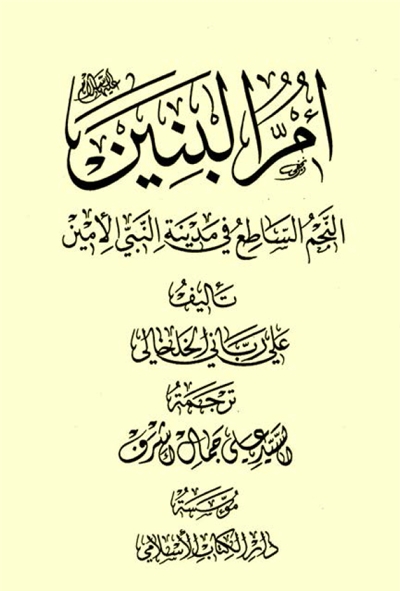 أُمُّ البَنِينَ عليها السلام
النجم الساطع في مدينة النبي الأمين
تأليف
علي رباني الخلخالي
ترجمة
السيد علي جمال أشرف
مؤسسة
دار الكتاب الإسلامي